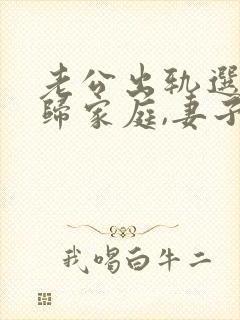 老公出轨選
歸家庭,妻子
我喝白牛二